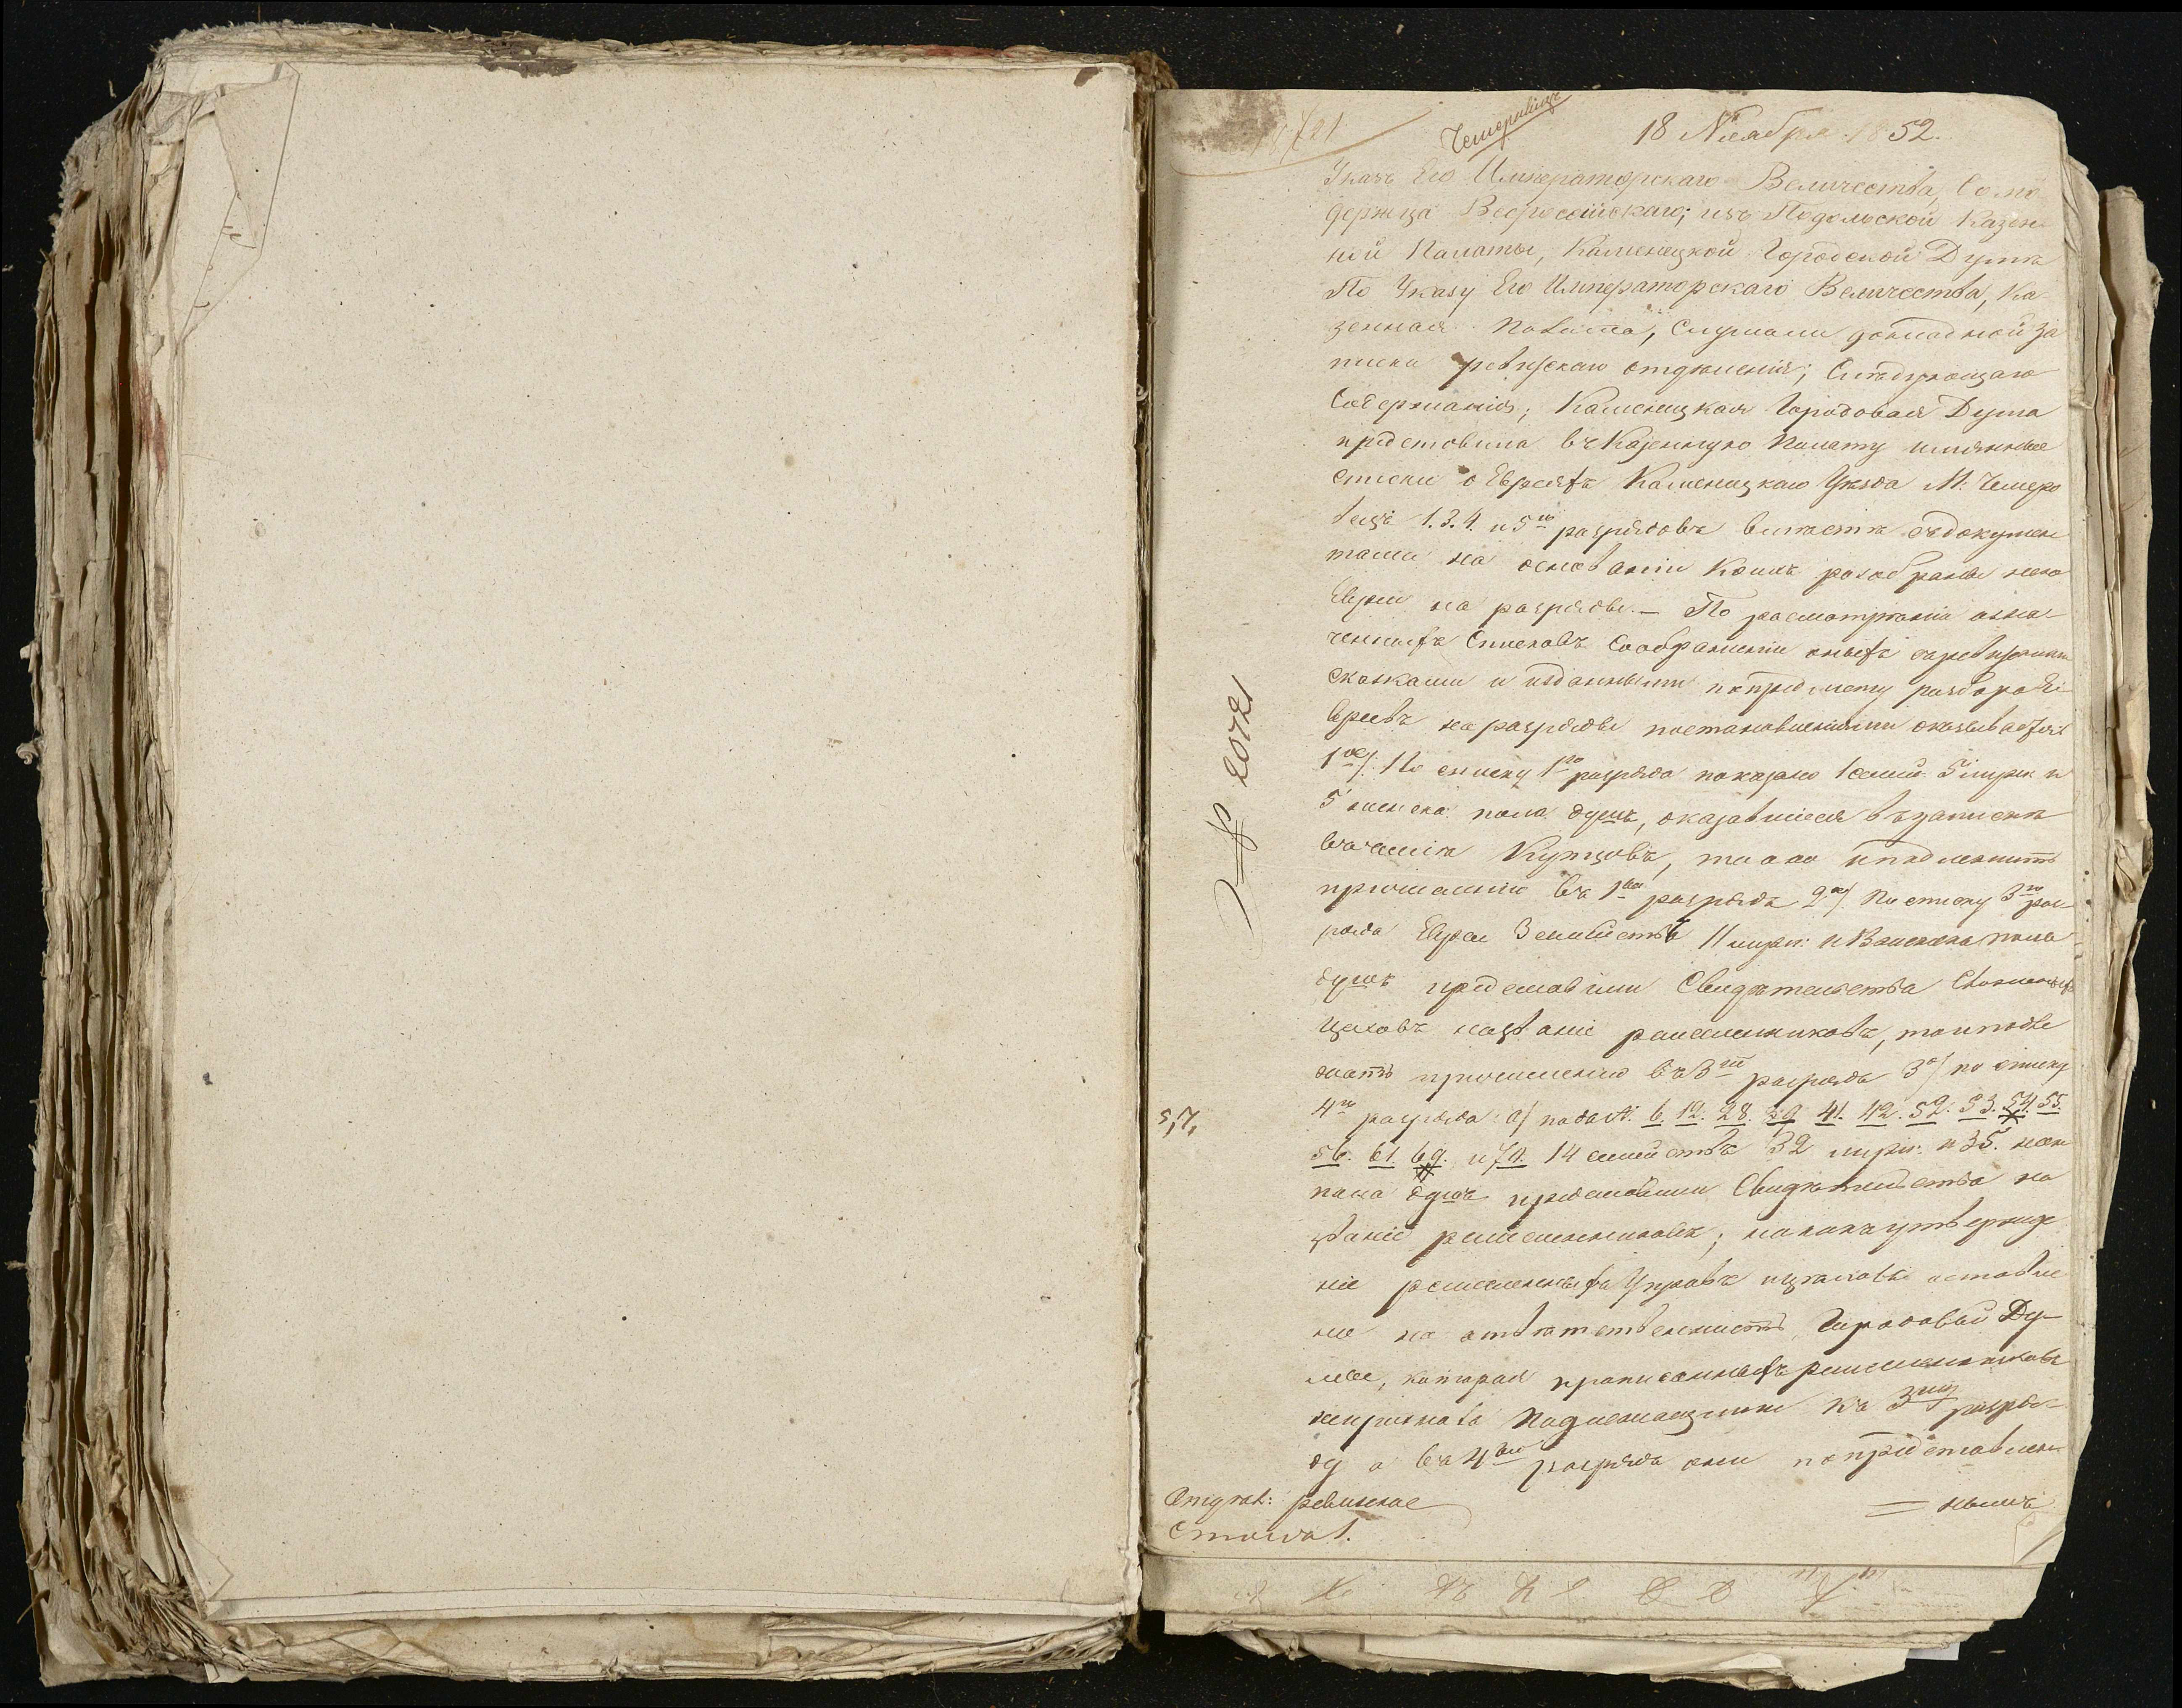 Чемеровицъ
18 Ноября 1852.
Указъ Его Императорскаго Величества, Само
держца Всеросѣійскаго; изъ Подольской Казен
ной Палаты, Каменецкой Городской Думѣ
По Указу Его Императорскаго Величества, Ка
зенная Палата, Слушали докладной за
писки ревизскаго отдѣленія; Слѣдующаго
Содержанія; Каменецкая Городовая Дума
представила въ Казенную Палату имянные
списки о Евреяхъ Каменецкаго Уѣзда М. Чемеро
вецъ 1. 3. 4. и 5го разрядовъ вмѣстѣ съ докумен
тами на основаніи коихъ разобраны
Евреи на разряды. — По разсмотрѣніи озна
ченныхъ Списковъ Соображеніи оныхъ съ ревизскими
сказками и изданными по предмету разбора Е
вреевъ на разряды постановленіями оказывается
1ое/. По списку 1го разряда показано 1 семей. 5 мужс и
5 женска пола душъ, оказавшіеся въ
Купцовъ, подлежитъ
причисленію въ 1вый разрядъ 2е/ По списку 3го раз
ряда Евреи 3 семействъ 11 мужс: и женска пола
душъ представили Свидѣтельства
цеховъ на званіе ремесленниковъ, то и подле
жатъ причисленію въ 3тій разрядъ 3е/ по списку
5,7,
4го разряда: а/ подъ №: 6. 12. 28. 29 41. 42. 52. 53. 54. 55.
56. 61. 69. и 70. 14 семействъ 32 мужс: и 35. жен
пола душъ представили Свидѣтельства на
званіе ремесленниковъ;
ніе ремесленныхъ Управъ и цеховъ оставле
но на отвѣтственность Городовой Ду
мы, которая прописанныхъ ремесленниковъ
непризнала подлежащими къ 3му разря
ду а въ 4вый разрядъ они по представлен
= нымъ
Отдѣл: ревизское
Стола 1.
№ 20721